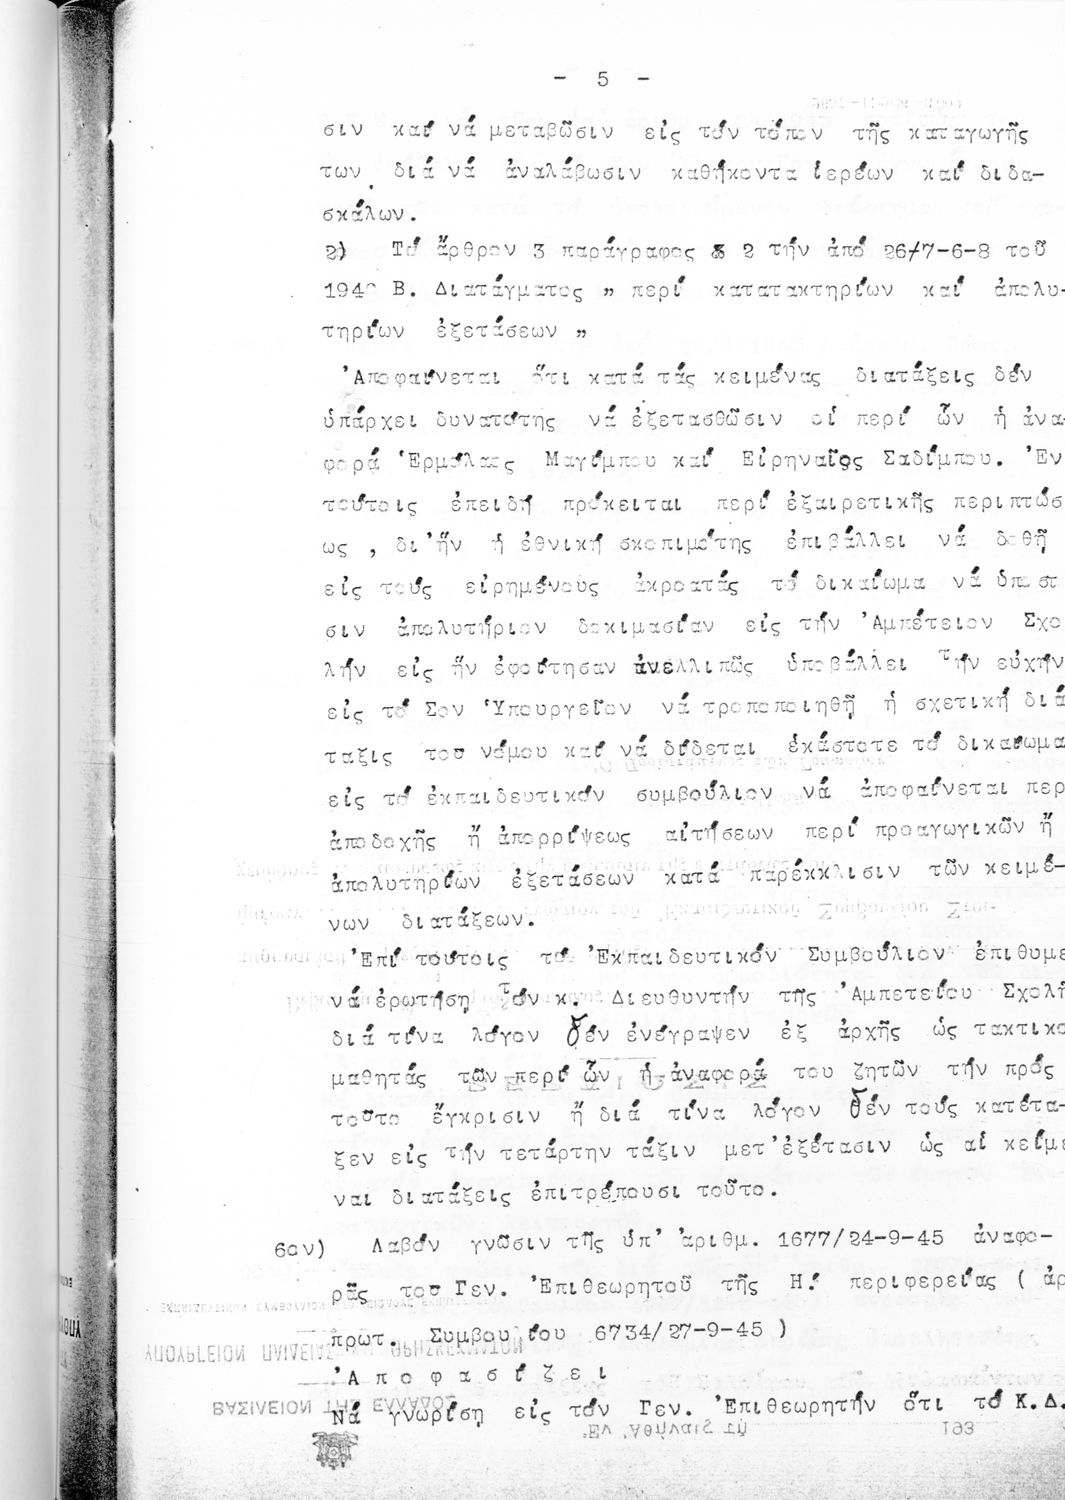 - 5 -
σιν καί νά μεταβῶσιν εἰς τόν τόπον τῆς καταγωγῆς
των διά νά ἀναλάβωσιν καθήκοντα ἱερέων καί διδα-
σκάλων.
2) Τό ἄρθρον 3 παράγραφος & 2 τήν ἀπό 26/7-6-8 τοῦ
194 Β. Διατάγματος „ περί κατατακτηρίων καί ἀπολυ-
τηρίων ἐξετάσεων „
Ἀποφαίνεται ὅτι κατά τάς κειμένας διατάξεις δέν
ὑπάρχει δυνατότης νά ἐξετασθῶσιν οἱ περί ὧν ἡ ἀνα-
φορά Ἑρμόλαος Μαγίμπου καί Εἰρηναῖος Σαδίμπου. Ἐν
τούτοις ἐπειδή πρόκειται περί ἐξαιρετικῆς περιπτώσ
ως , δι'ἥν ἡ ἐθνική σκοπιμότης ἐπιβάλλει νά δοθῇ
εἰς τούς εἰρημένους ἀκροατάς τό δικαίωμα νά ὑποστ
σιν ἀπολυτήριον δοκιμασίαν εἰς τήν Ἀμπέτειον Σχο
λήν εἰς ἥν ἐφοίτησαν ἀνελλιπῶς ὑποβάλλει τήν εὐχήν
εἰς τό Σον Ὑπουργεῖον νά τροποποιηθῇ ἡ σχετική διά
ταξις του νόμου καί νά δίδεται ἑκάστοτε τό δικαίωμα
εἰς τό ἐκπαιδευτικόν συμβούλιον νά ἀποφαίνεται περ
ἀποδοχῆς ἤ ἀπορρίψεως αἰτήσεων περί προαγωγικῶν ἤ
ἀπολυτηρίων ἐξετάσεων κατά παρέκκλισιν τῶν κειμέ-
νων διατάξεων.
Ἐπί τούτοις τό Ἐκπαιδευτικόν Συμβούλιον ἐπιθυμε
νά ἐρωτήσῃ τόν κ. Διευθυντήν τῆς Ἀμπετείου Σχολῆ
διά τίνα λόγον δέν ἐνέγραψεν ἐξ ἀρχῆς ὡς τακτικο
μαθητάς τῶν περί ὧν ἡ ἀναφορά του ζητῶν τήν πρός
τοῦτο ἔγκρισιν ἤ διά τίνα λόγον δέν τούς κατέτα-
ξεν εἰς τήν τετάρτην τάξιν μετ'ἐξέτασιν ὡς αἱ κείμε
ναι διατάξεις ἐπιτρέπουσι τοῦτο.
6ον) Λαβόν γνῶσιν τῆς ὑπ' ἀριθμ. 1677/24-9-45 ἀναφο-
ρᾶς του Γεν. Ἐπιθεωρητοῦ τῆς Η! περιφερείας ( ἀρ
πρωτ. Συμβουλίου 6734/27-9-45 )
Ἀ π ο φ α σ ί ζ ε ι
Νά γνωρίσῃ εἰς τόν Γεν. Ἐπιθεωρητήν ὅτι τό Κ.Δ.